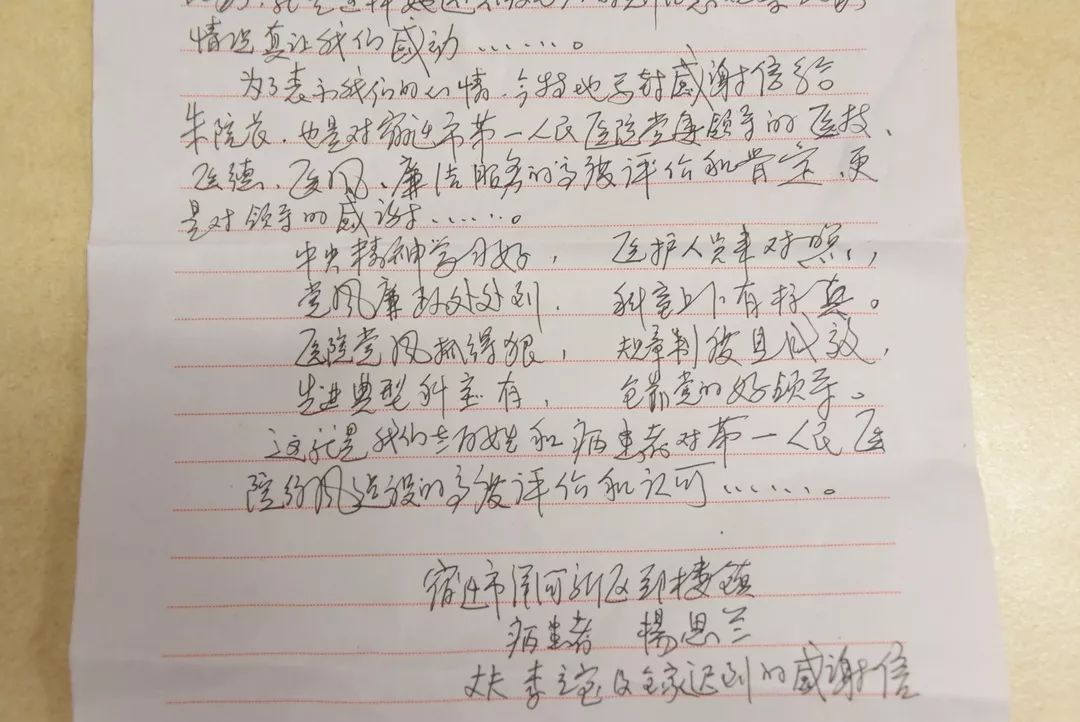 情况真让我们感动……。
为了表示我们的心情,今特地写封感谢信给
朱院长,也是对宿迁市第一人民医院党委领导的医技、
医德、医风、廉洁服务的高度评价和肯定,更
是对领导的感谢……。
中央精神学习好, 医护人员来对照,
党风廉政处处到, 科室上下有标真。
医院党风抓得狠, 规章制度见成效,
先进典型科室有, 全靠党的好领导。
这就是我们老百姓和病患者对第一人民医
院行风建设的高度评价和认可……。
宿迁市洋河新区郑楼镇
病患者 杨思兰
丈夫 李立宝及全家迟到的感谢信